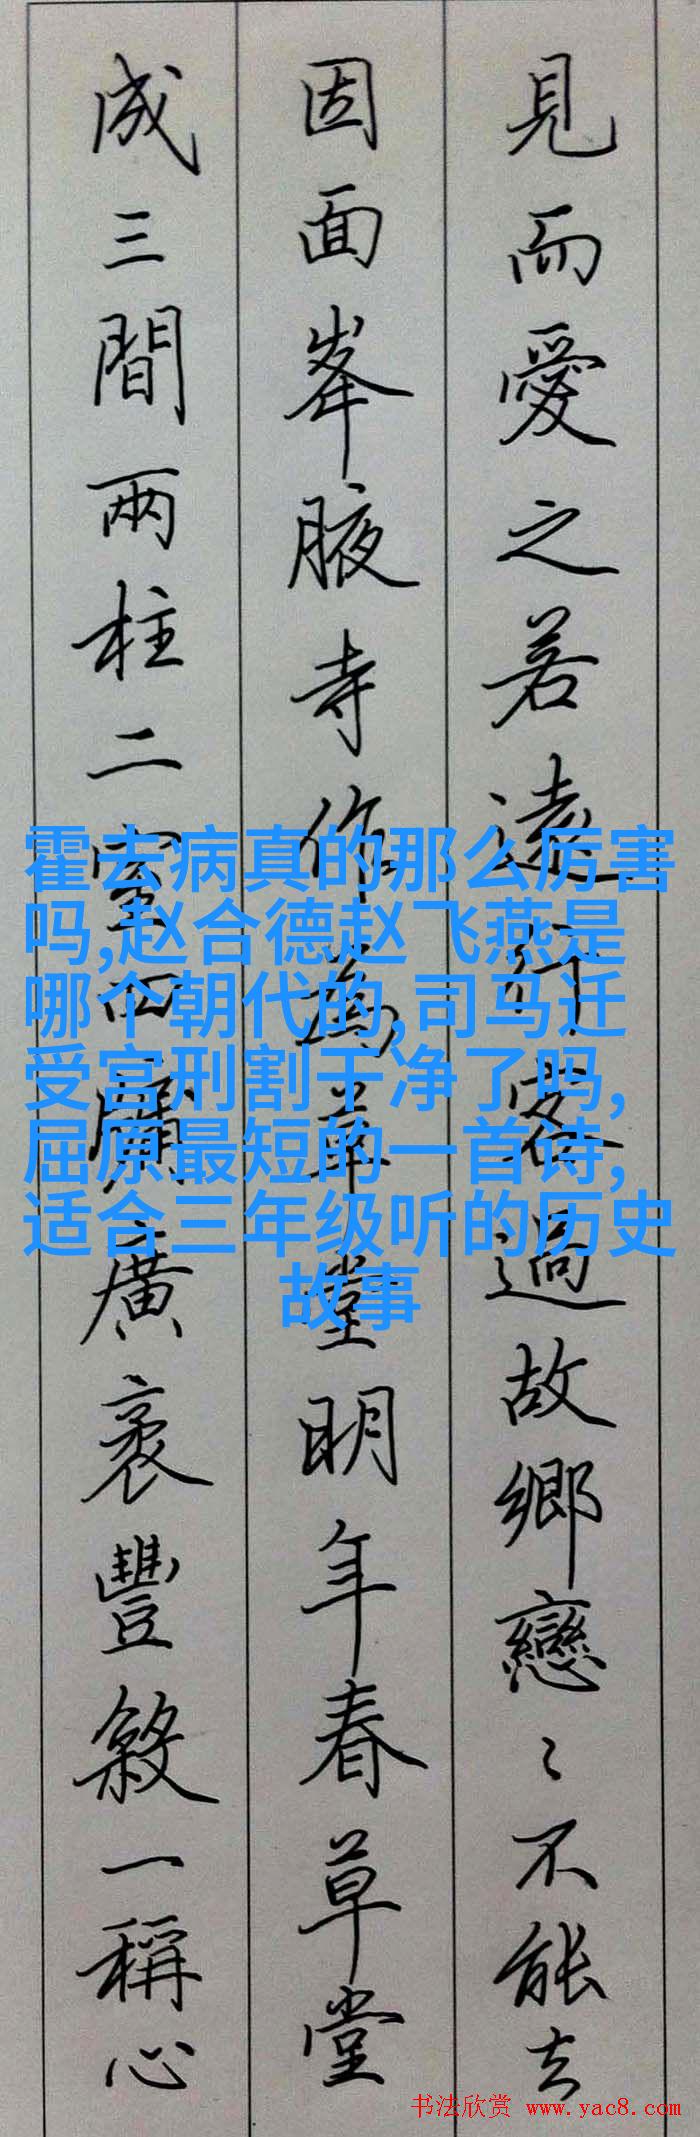 見而愛之若遠行客過故鄉戀戀不能去
因面峯腋寺作為草堂明年春草堂
成三間兩柱二室四牖廣袤豐殺一稱心
霍去病真的那么厉害
吗,赵合德赵飞燕是
哪个朝代的,司马迁
受宫刑割干净了吗,
屈原最短的一首诗,
适合三年级听的历史
故事
书法欣赏 www.yac8.com